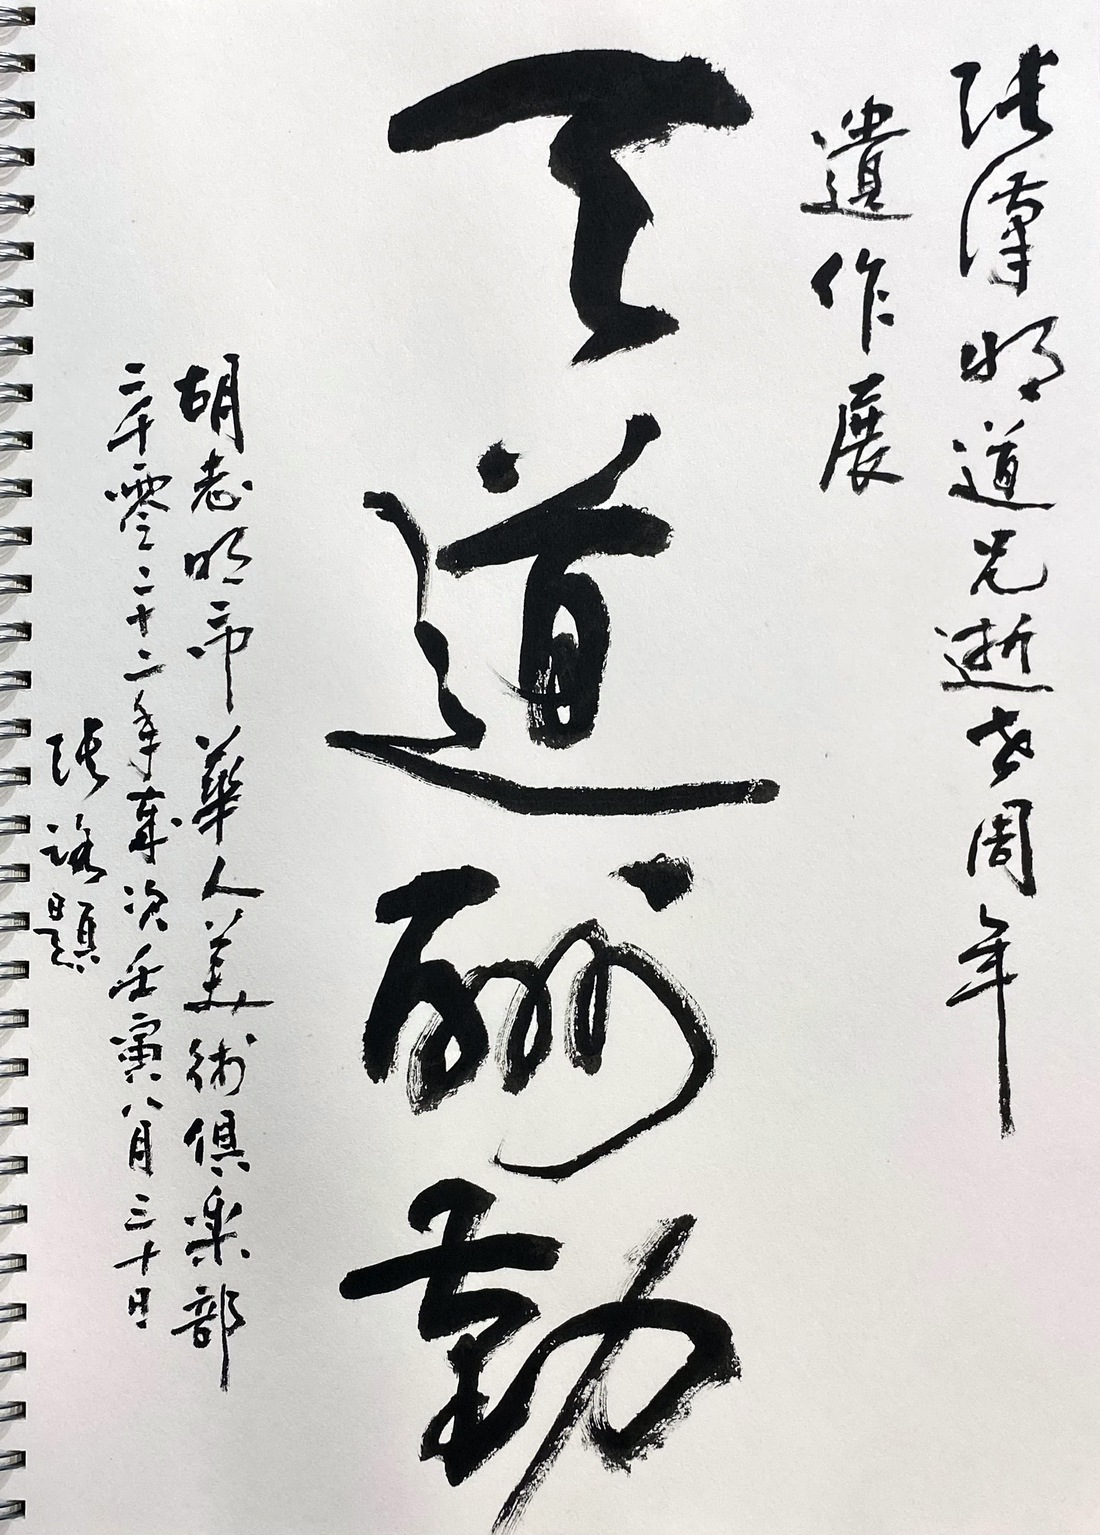 張漢明道兄逝世周年
遺作展
天道酬勤
胡志明市華人美術俱楽部
二千零二十二年歲次壬寅八月三十日
張路題